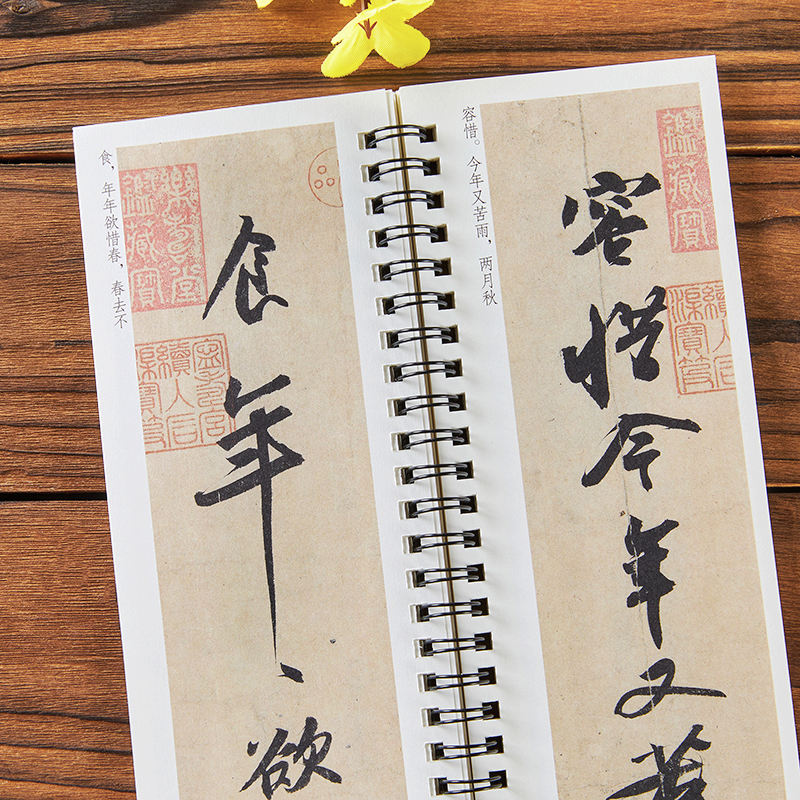 食，年年欲惜春，春去不
食年〻欲
容惜。今年又苦雨，两月秋
容惜今年又苦